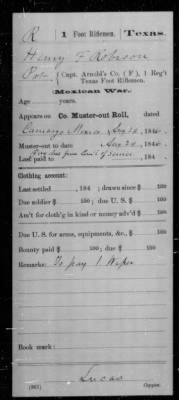 R | 1 | Foot Riflemen. | Texas.
Henry F Robinson
Pvt., { Capt. Arnold's Co. (F), 1 Reg't
Texas Foot Riflemen.
Mexican War.
Age years.
Appears on Co. Muster-out Roll, dated
Camargo Mexico Aug 24, 1846.
Muster-out to date Aug 24, 1846.
Pay due from Enrl't of service
Last paid to , 184 .
Clothing account:
Last settled , 184 ; drawn since $ 100
Due soldier $ 100; due U. S. $ 100
Am't for cloth'g in kind or money adv'd $ 100
Due U. S. for arms, equipments, &c., $ 100
Bounty paid $ 100; due $ 100
Remarks: To pay 1 Wiper
Book mark:
Lucas
(361) Copyist.